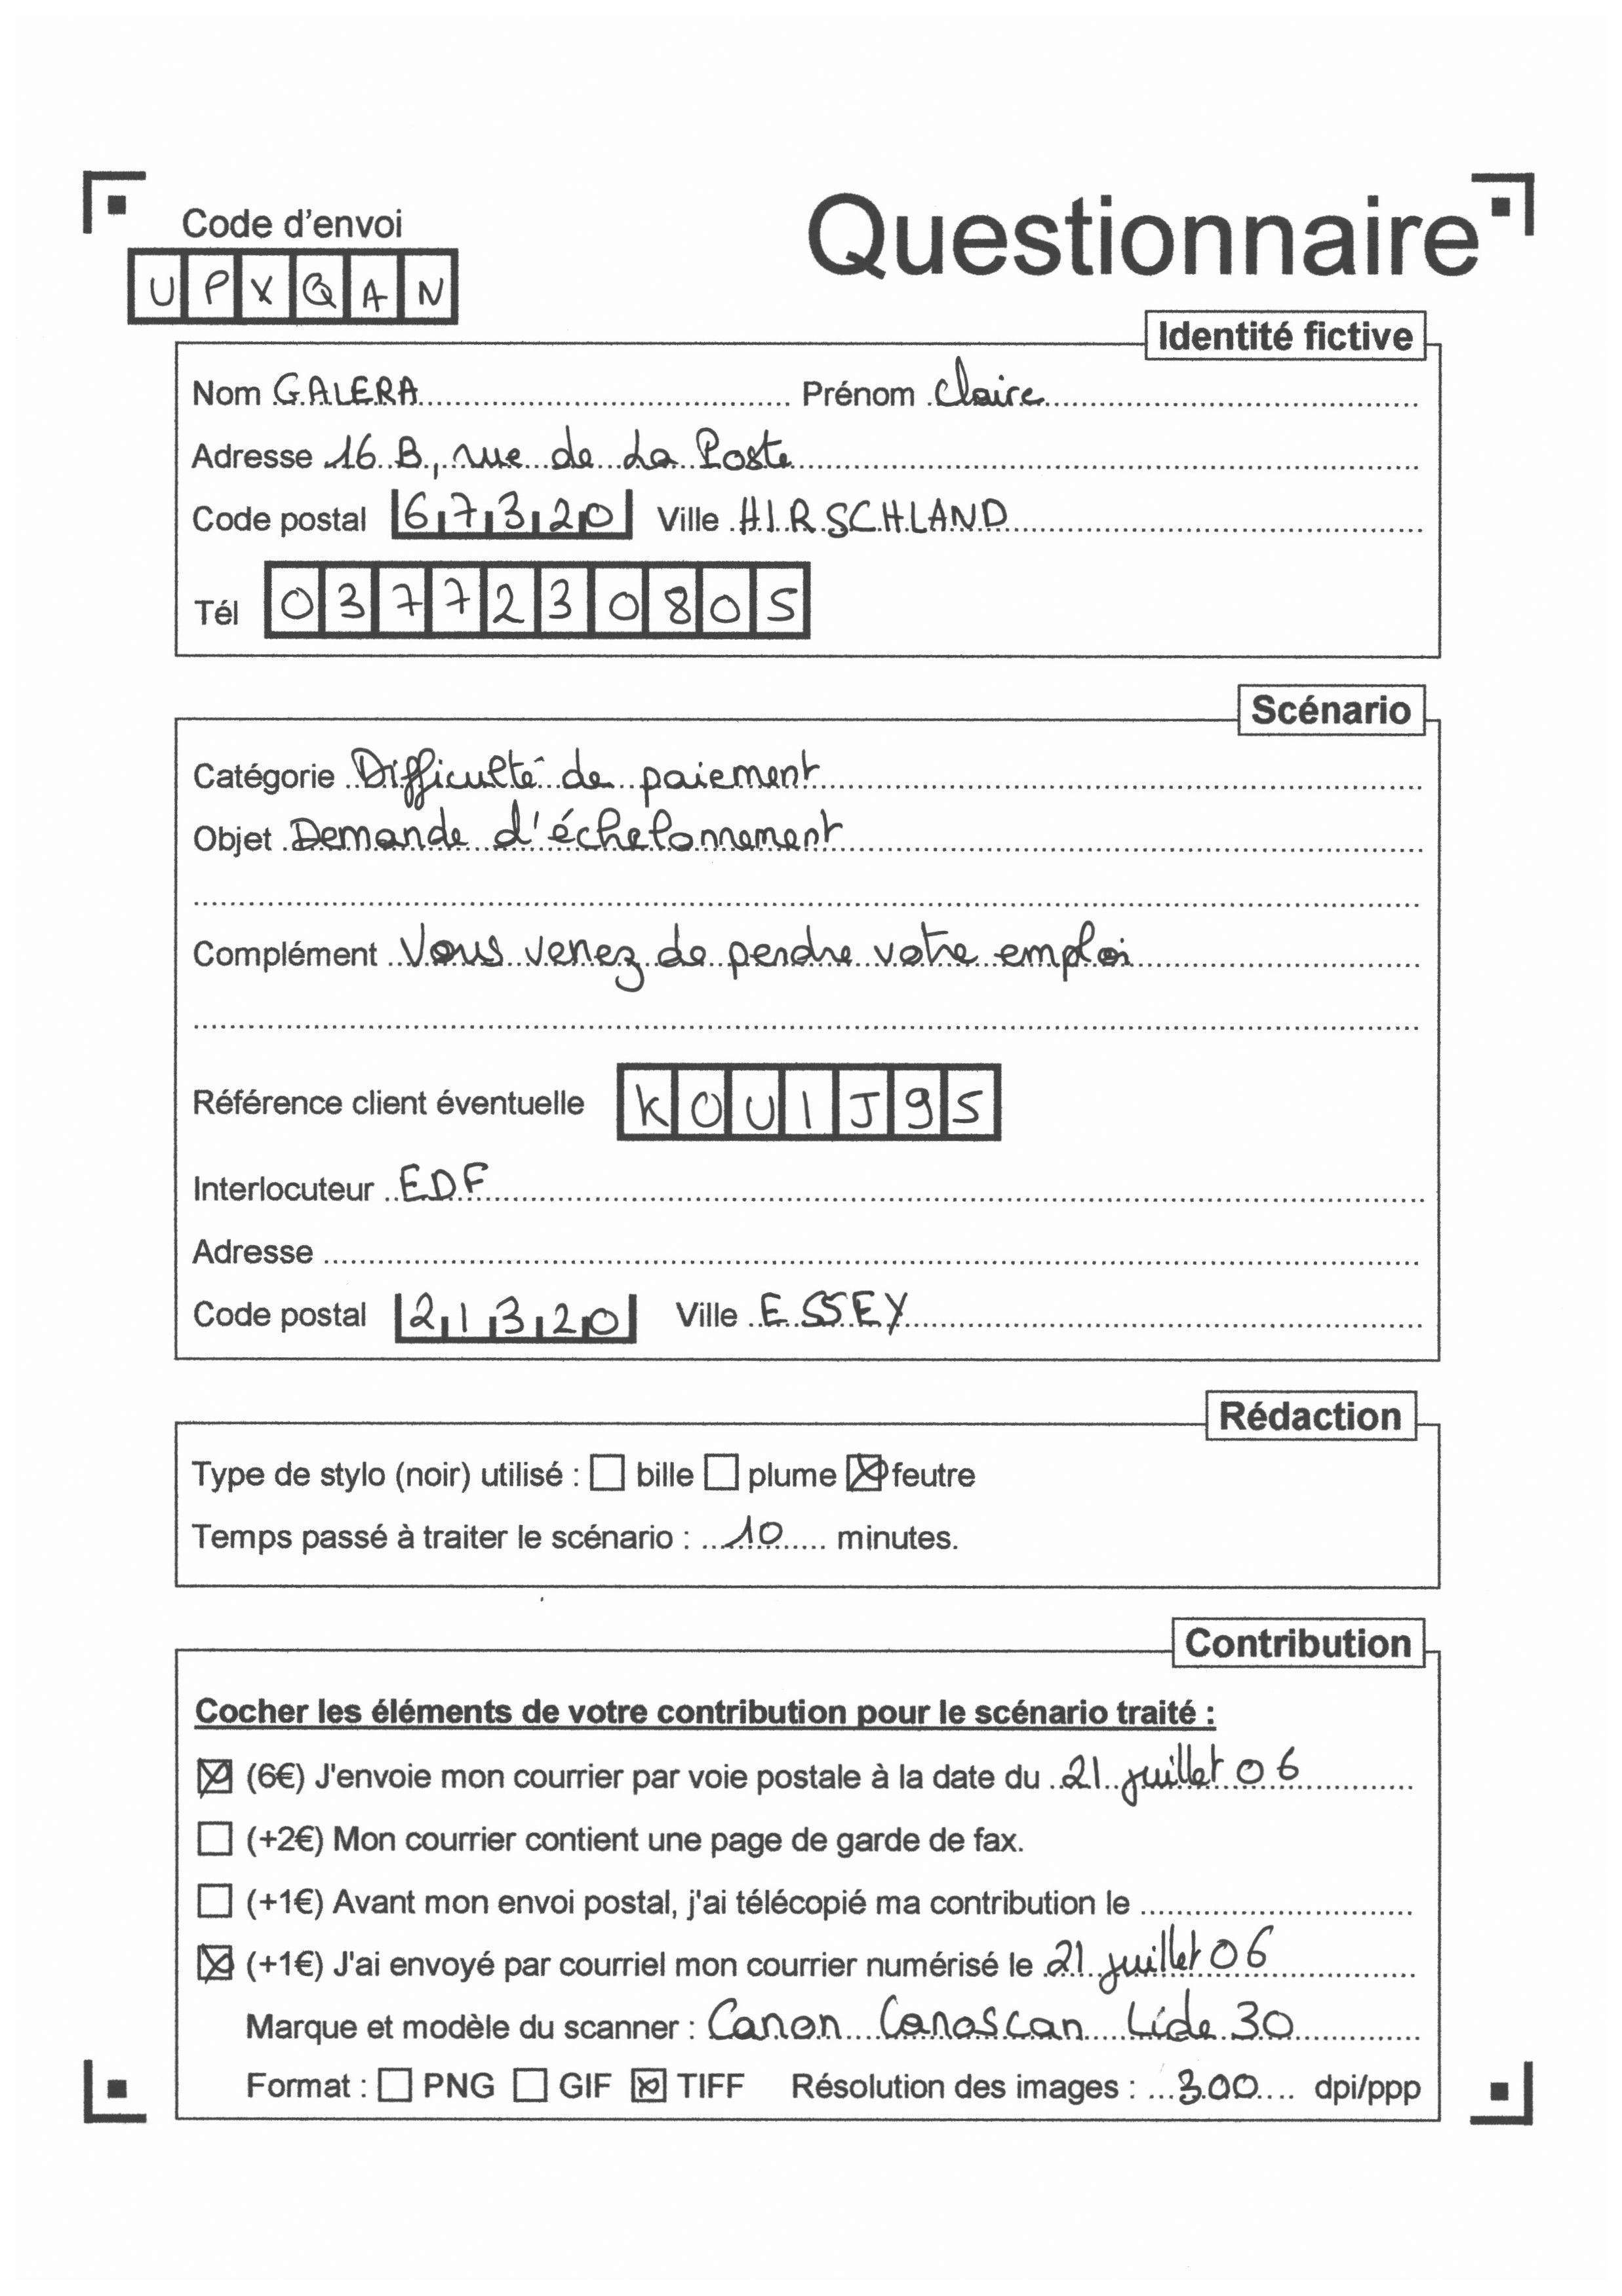 Code d'envoi
Questionnaire
U P X Q A N
Identité fictive
Nom GALERA Prénom Claire
Adresse 16 B, rue de La Poste
Code postal 67320 Ville HIRSCHLAND
Tél 0377230805
Scénario
Catégorie Difficulté de paiement
Objet Demande d'échelonnement
Complément Vous venez de perdre votre emploi
Référence client éventuelle KOUIJ95
Interlocuteur EDF
Adresse
Code postal 21320 Ville ESSEY
Rédaction
Type de stylo (noir) utilisé : ☐ bille ☐ plume ☒ feutre
Temps passé à traiter le scénario : 10 minutes.
Contribution
Cocher les éléments de votre contribution pour le scénario traité :
☒ (6€) J'envoie mon courrier par voie postale à la date du 21 juillet 06
☐ (+2€) Mon courrier contient une page de garde de fax.
☐ (+1€) Avant mon envoi postal, j'ai télécopié ma contribution le
☒ (+1€) J'ai envoyé par courriel mon courrier numérisé le 21 juillet 06
Marque et modèle du scanner : Canon Canoscan Lide 30
Format : ☐ PNG ☐ GIF ☒ TIFF Résolution des images : 300 dpi/ppp